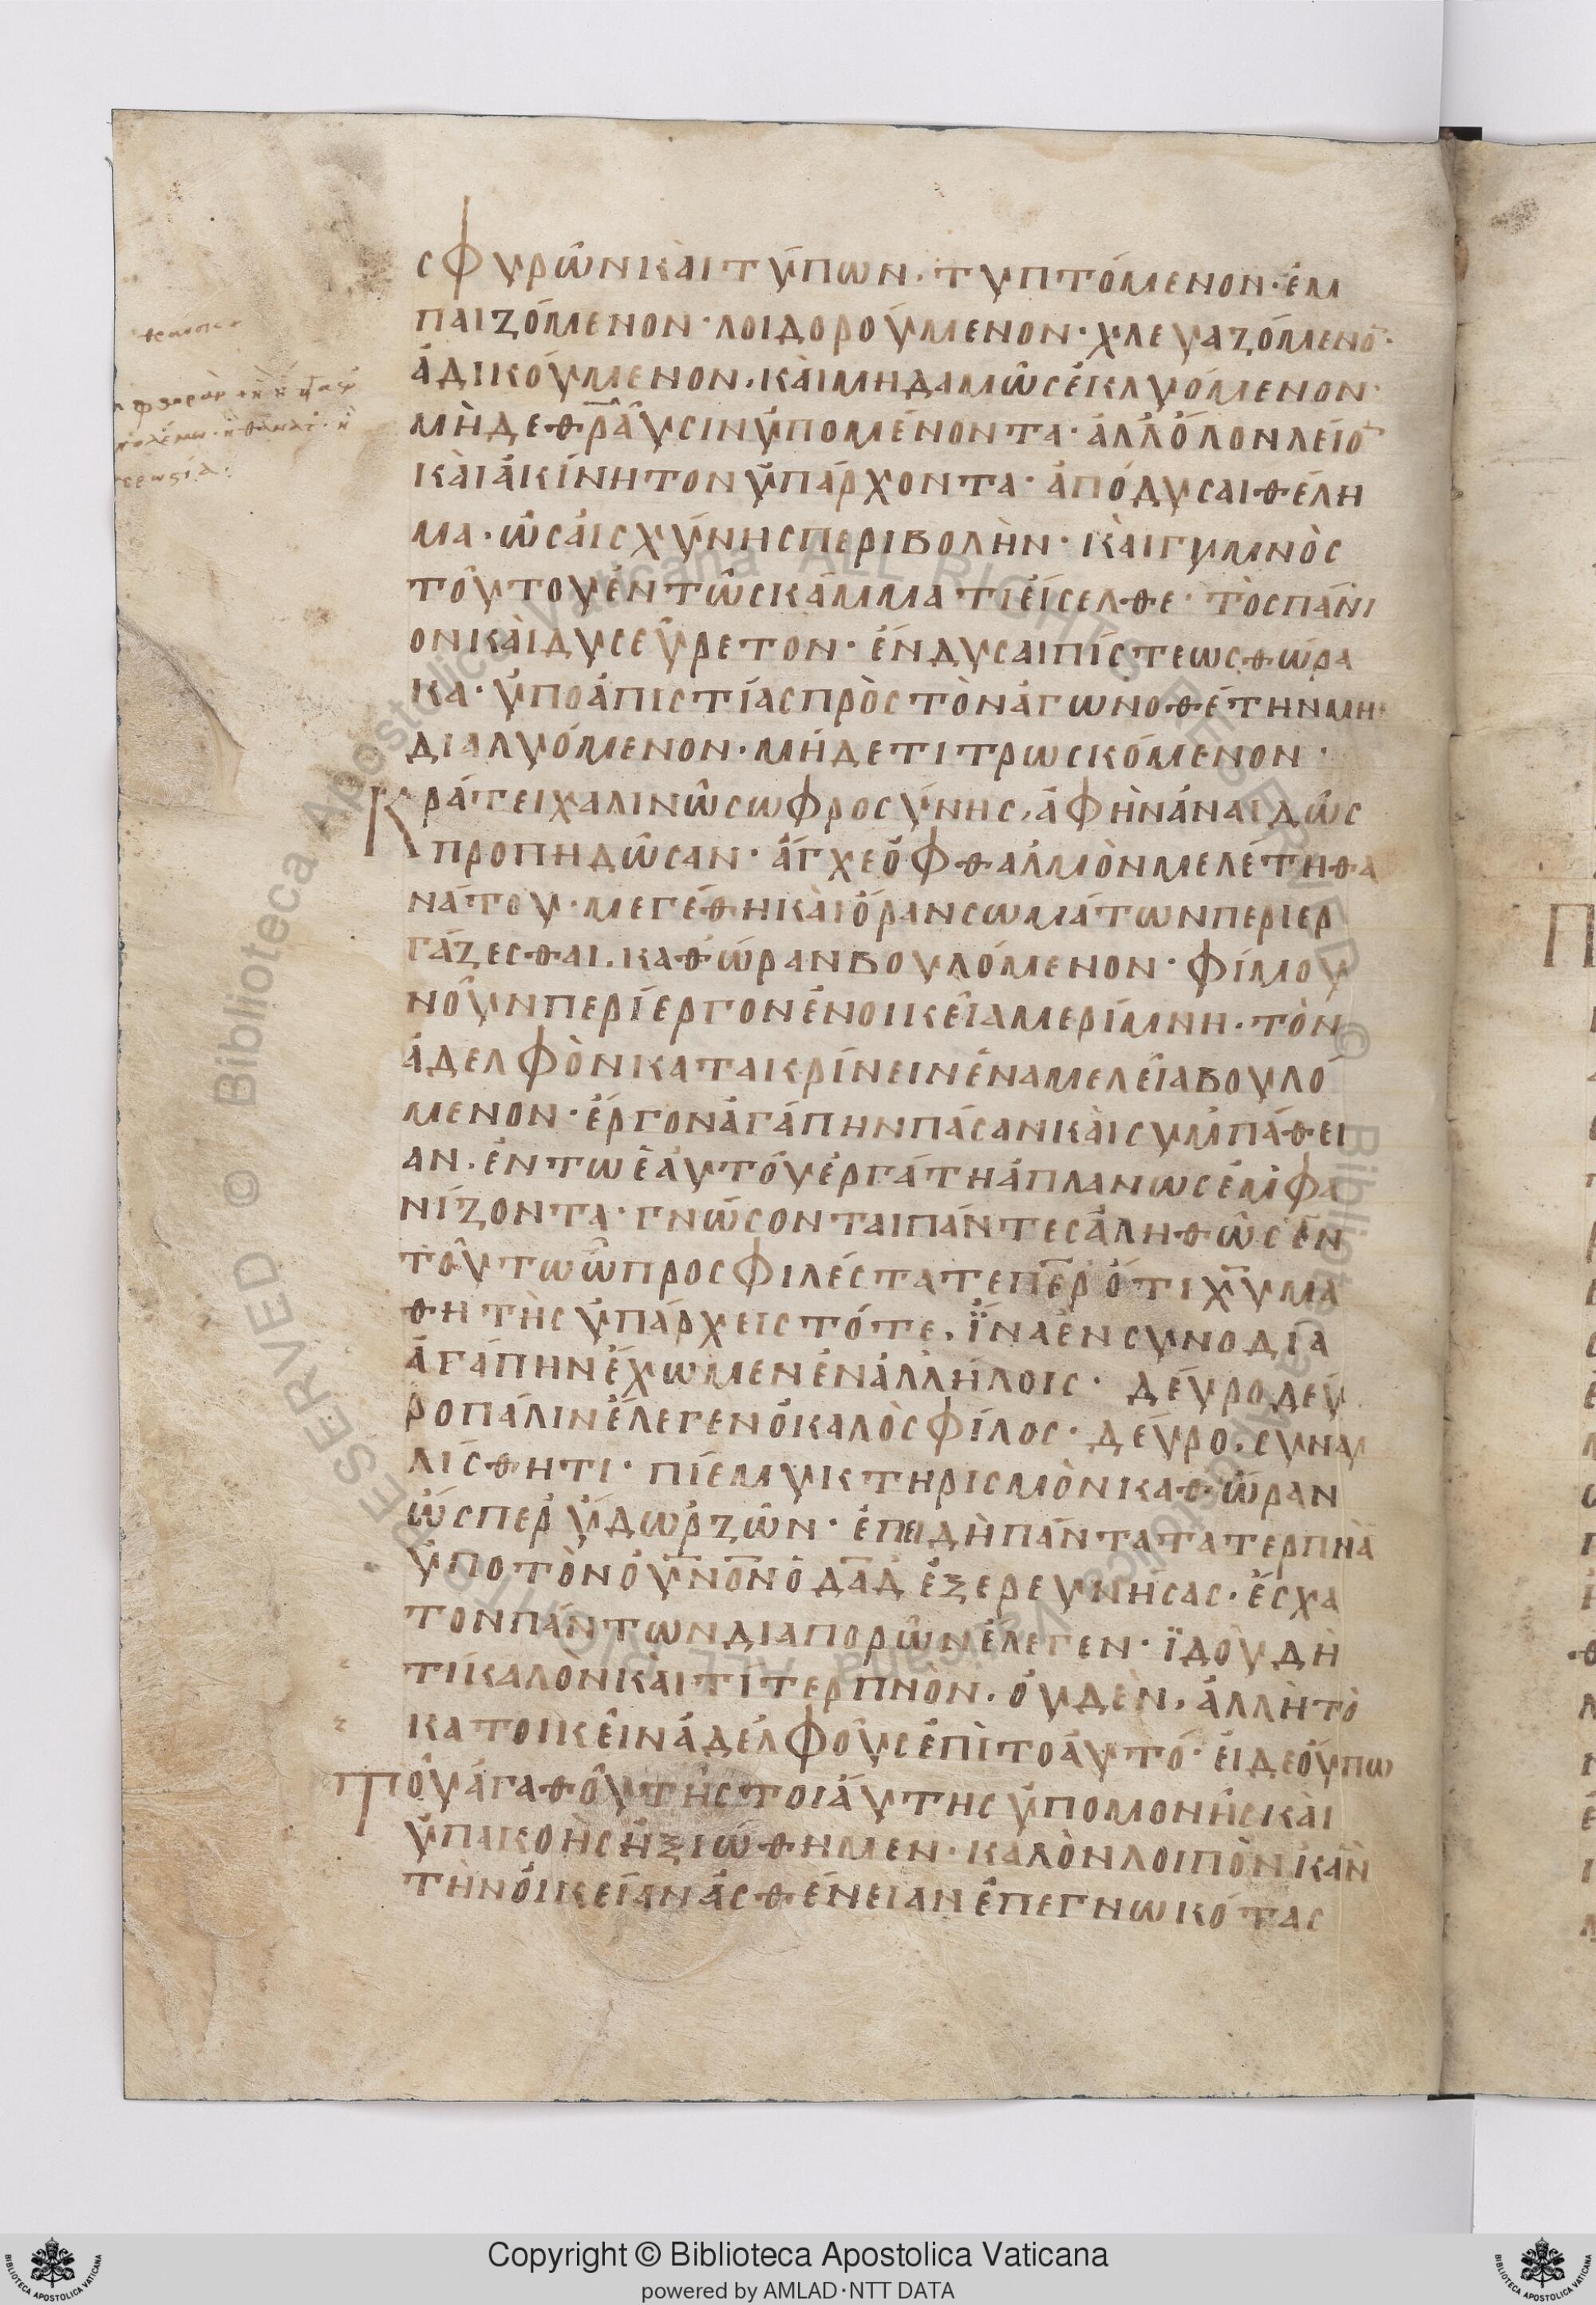 σφυρῶν καὶ τύπων. τυπτόμενον· ἐμ
παιζόμενον· λοιδορούμενον· χλευαζόμενο̅·
ἀδικούμενον. καὶ μηδαμῶς ἐκλυόμενον·
μὴδε θρ̅αῦσιν ὑπομένοντα· ἀλλ' ὅλον λεῖο̅
καὶ ἀκίνητον ὑπάρχοντα· ἀπόδυσαι θέλη
μα· ὡς αἰσχύνης περιβολὴν· καὶ γυμνὸς
τούτου ἐν τῶ σκάμματι εἴσελθε· τὸ σπάνι
ον καὶ δυσεύρετον· ἔνδυσαι πίστεως θώρα
κα· ὑπο ἀπιστίας πρὸς τὸν ἀγωνοθέτην μη
διαλυόμενον· μήδε τιτρωσκόμενον·
Κράτει χαλινῶ σωφροσύνης, ἁφὴν ἀναιδῶς
προπηδῶσαν· ἄγχε ὀφθαλμὸν μελέτη θα
νάτου· μεγέθη καὶ ὅραν σωμάτων περιερ
γάζεσθαι. καθ' ὥραν βουλόμενον· φίμου
νοῦν περίεργον ἐν οἰκεῖα μερίμνη. τὸν
ἀδελφὸν κατακρίνειν ἐν αμελεία βουλό
μενον· ἔργον ἀγάπην πάσαν καὶ συμπάθει
αν. ἐν τω ἑαυτοῦ ἐργάτη ἀπλανως ἐμφα
νίζοντα· γνώσονται πάντες ἀληθῶς ἐν
τούτω ὦ προσφιλέστατε πε̅ρ ὅτι χ̅υ μα
θητὴς ὑπάρχεις τότε. ἵνα ἐν συνοδία
ἀγάπην ἔχωμεν ἐν ἀλλήλοις· δεύρο δεύ
ρο πάλιν ἔλεγεν ὁ καλὸς φίλος· δεύρο. συναυ
λίσθητι· πίε μυκτηρισμὸν καθ' ὥραν
ὥσπερ ὕδωρ ζῶν· ἐπειδὴ πάντα τα τερπνὰ
ὑπο τὸν ὀυ̅νο̅ν ὁ δα̅δ ἐξερευνήσας· ἔσχα
τον πάντων διαπορῶν ἔλεγεν· ἰδοὺ δὴ
τί καλὸν καὶ τί τερπνὸν. οὐδὲν, ἀλλ' ἢ τὸ
κατοικεῖν ἀδελφοὺς ἐπὶ το ἀυτό· εἰ δε οὔπω
Τοῦ ἀγαθοῦ τῆς τοιαύτης ὑπομονῆς καὶ
ὑπακοῆς ἠξιώθημεν· καλὸν λοιπὸν κἀν
τὴν οἰκείαν ἀσθένειαν ἐπεγνωκότας
Copyright © Biblioteca Apostolica Vaticana
powered by AMLAD·NTT DATA